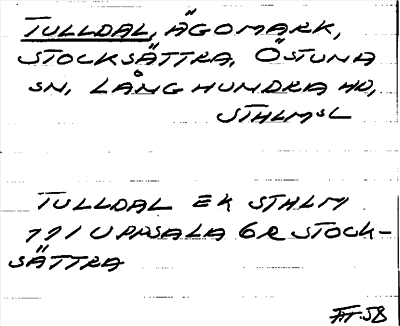 TULLDAL, ÄGOMARK,
STOCKSÄTTRA, ÖSTUNA
SN, LÅNGHUNDRA HD,
STHLMS L
TULLDAL EK STHLM
111 UPPSALA 6R STOCK-
SÄTTRA